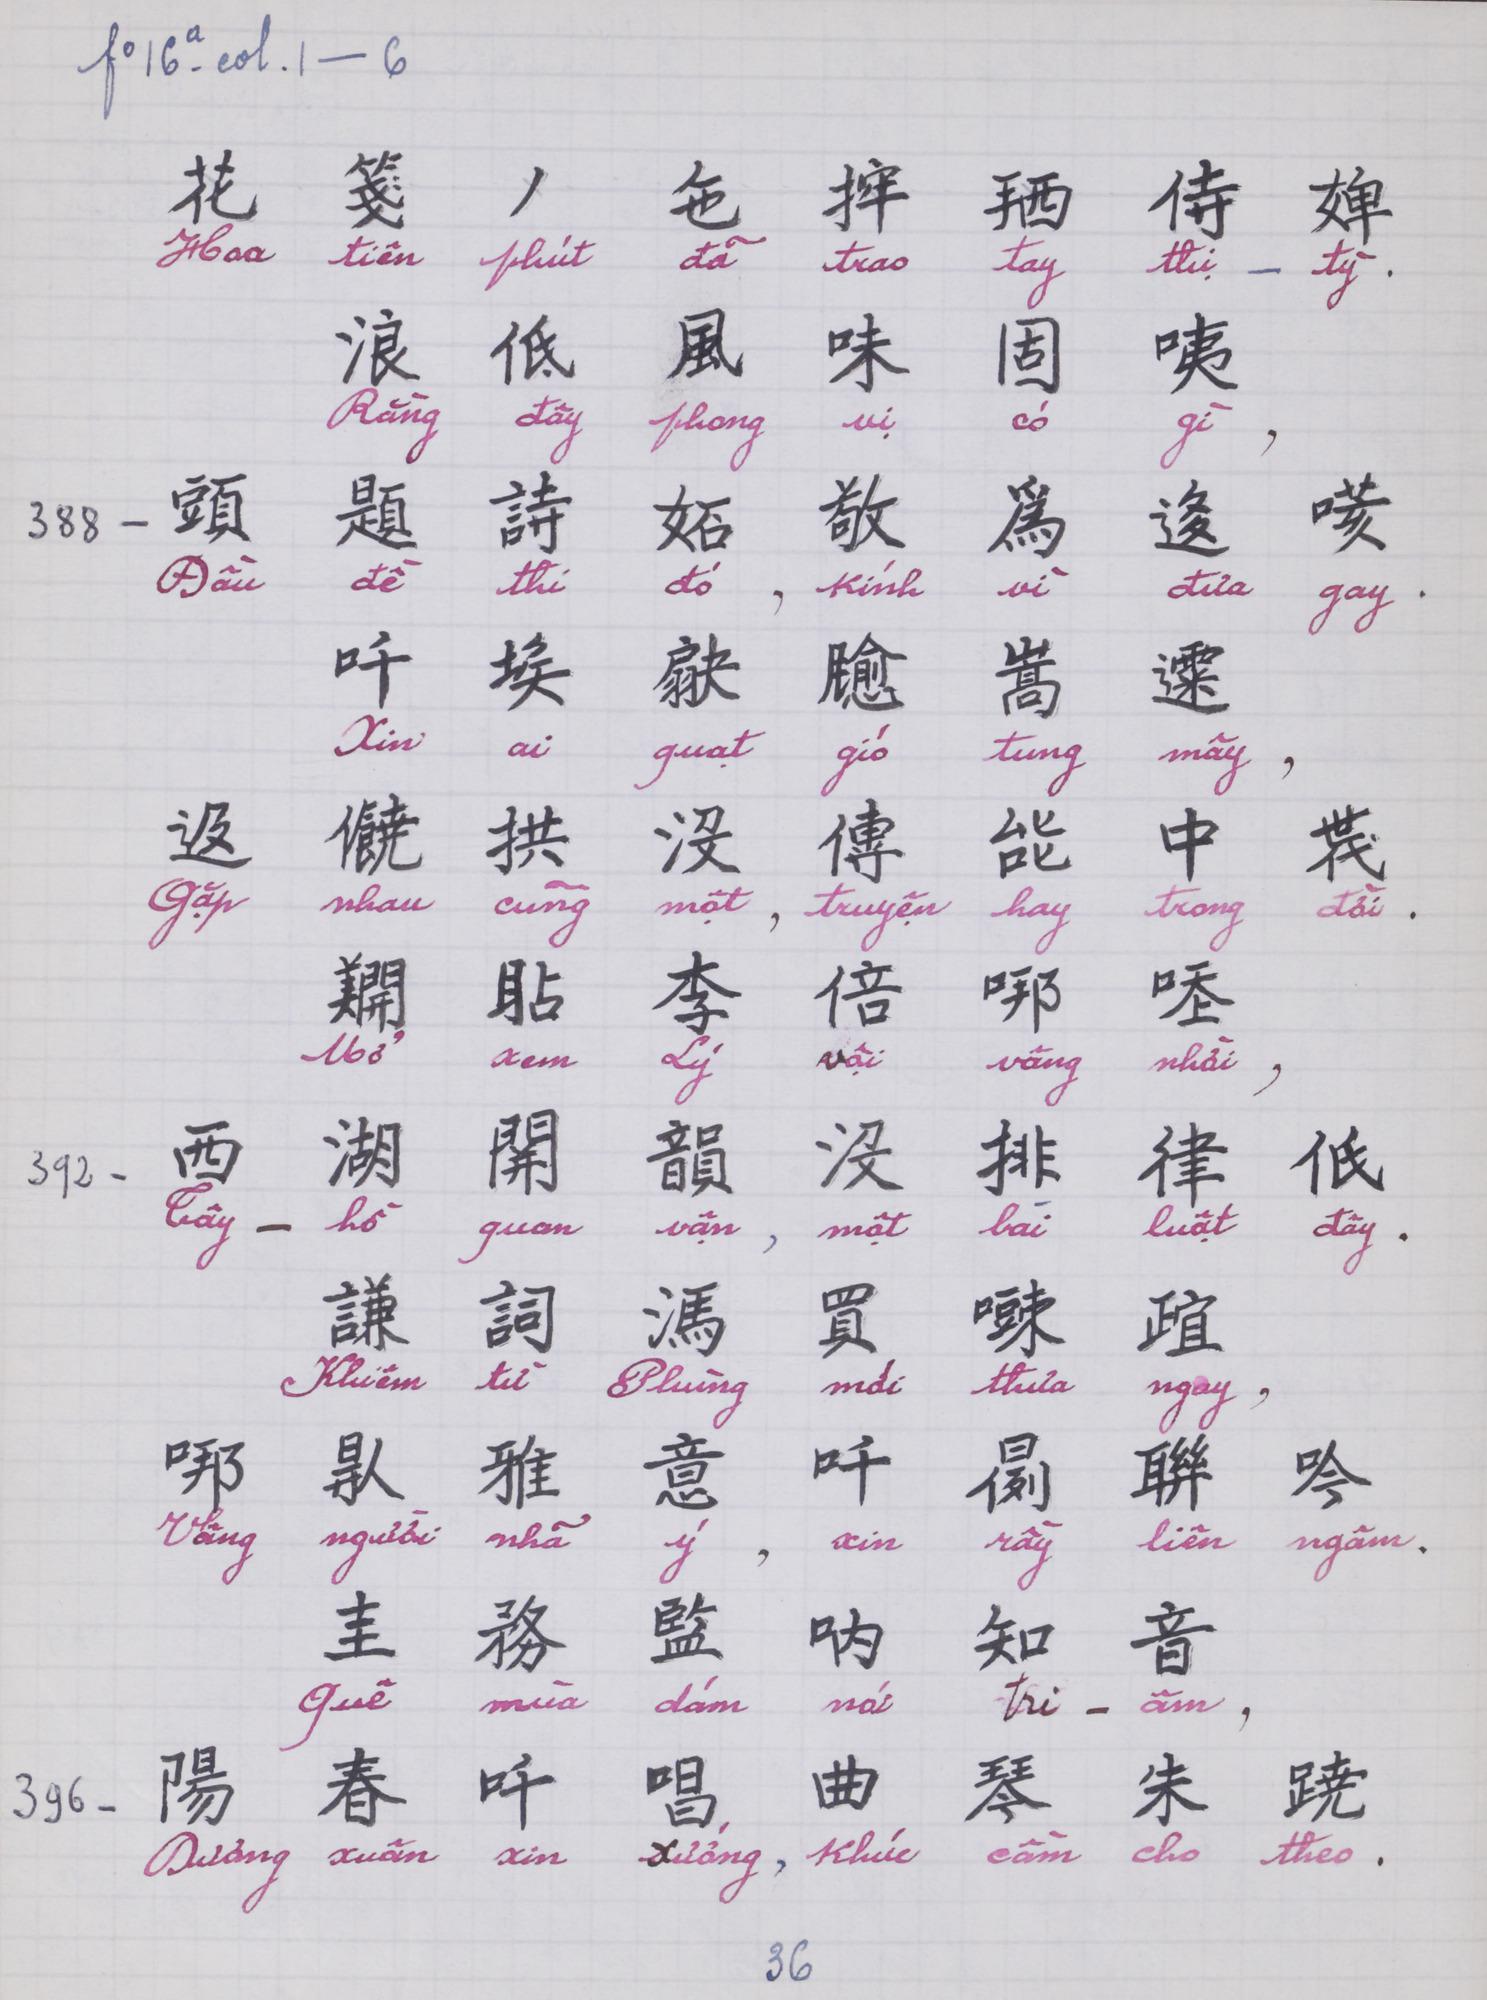 fº 16ª - col. 1 — 6
花 箋 丿 㐌 𢭂 𢬣 侍 婢
Hoa tiên phút đã trao tay thị – tỳ .
浪 低 風 味 固 咦
Rằng đây phong vị có gì ,
388 – 頭 題 詩 妬 敬 爲 迻
Đầu đề thi đó , kính vì đưa gay .
吀 埃 𦑗 𩙋 嵩 𨗛
Xin ai quạt gió tung mây ,
返 僥 拱 沒 傳 咍 中
Gặp nhau cũng một , truyện hay trong đời .
𨷑 貼 李 倍 哪 𠴔
Mở xem Lý vội vâng nhời ,
392 – 西 湖 開 韻 沒 排 律 低
Tây – hồ quan vận , một bài luật đây .
謙 詞 馮 買 𠽔 𣦍
Khiêm từ Phùng mới thưa ngay ,
哪 𠎬 雅 意 吀 例 聯 吟
Vâng người nhã ý , xin rầy liên ngâm .
圭 務 監 吶 知 音
Quê mùa dám nói tri – âm ,
396 – 陽 春 吀 唱 曲 琴 朱 蹺
Dương xuân xin xướng , khúc cầm cho theo .
36